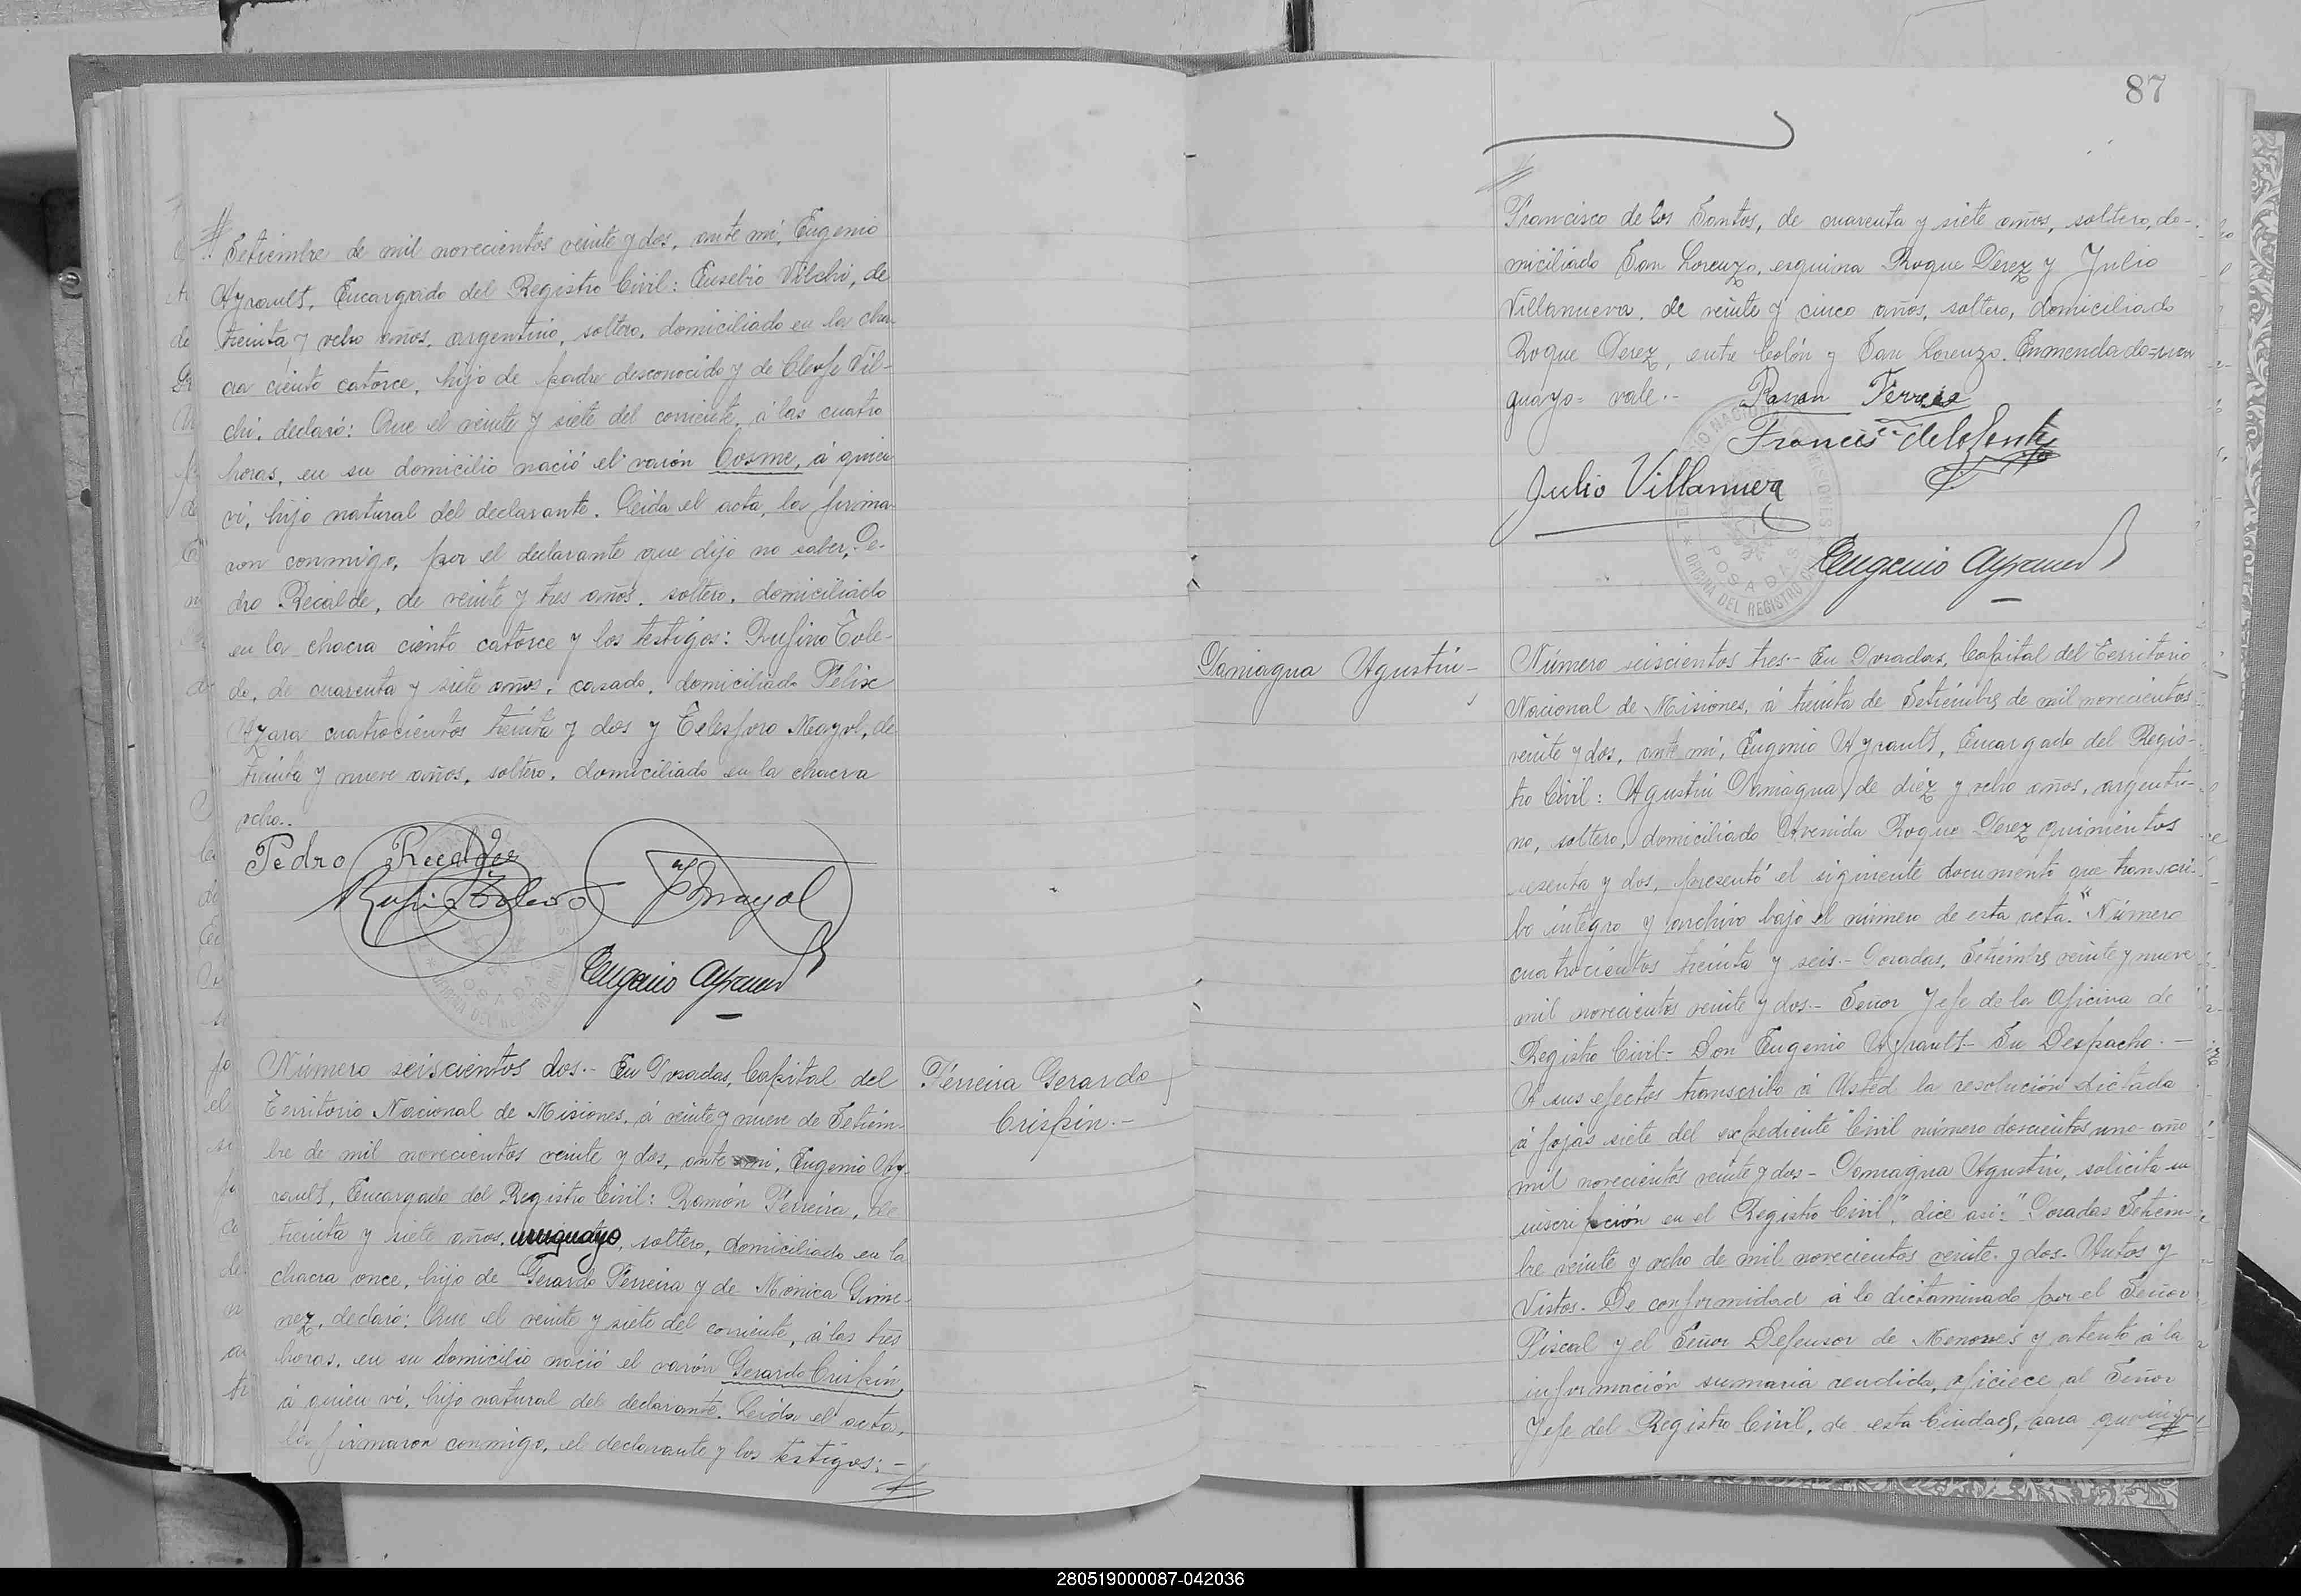 Setiembre de mil novecientos veinte y dos, ante mi, Eugenio
Ayrault, Encargado del Registro Civil: Eusebio Vilchi, de
treinta y ocho años, argentino, soltero, domiciliado en la cha-
cra ciento catorce, hijo de padre desconocido y de Cleofe Vil-
chi, declaró: Que el veinte y siete del corriente, á las cuatro
horas, en su domicilio nació el varón Cosme, á quien
ví, hijo natural del declarante. Leida el acta, la firma-
ron conmigo, por el declarante que dijo no saber, Pe-
dro Recalde, de veinte y tres años, soltero, domiciliado
en la chacra ciento catorce y los testigos: Rufino Tole-
do, de cuarenta y siete años, casado, domiciliado Félix
Azara cuatrocientos treinta y dos y Telesforo Mayol, de
treinta y nueve años, soltero, domiciliado en la chacra
ocho..
Pedro Recalde
Rufino Toledo TMayol
Eugenio Ayrault
Número seiscientos dos.- En Posadas, Capital del
Territorio Nacional de Misiones, á veinte y nueve de Setiem-
bre de mil novecientos veinte y dos, ante mi, Eugenio Ay-
rault, Encargado del Registro Civil: Ramón Ferreira, de
treinta y siete años, uruguayo, soltero, domiciliado en la
chacra once, hijo de Gerardo Ferreira y de Mónica Gime-
nez, declaró: Que el veinte y siete del corriente, á las tres
horas, en su domicilio nació el varón Gerardo Crispín,
á quien ví, hijo natural del declarante. Leida el acta,
la firmaron conmigo, el declarante y los testigos: -
Ferreira Gerardo
Crispin.-
87
Francisco de los Santos, de cuarenta y siete años, soltero, do-
miciliado San Lorenzo, esquina Roque Perez y Julio
Villanueva, de veinte y cinco años, soltero, domiciliado
Roque Perez, entre Colón y San Lorenzo. Enmendado=uru
guayo= vale.- Ramon Ferreira
Francisco de los Santos
Julio Villanueva
Eugenio Ayrault
TERRITORIO NACIONAL DE MISIONES
POSADAS
OFICINA DEL REGISTRO CIVIL
Paniagua Agustín-
Número seiscientos tres.- En Posadas, Capital del Territorio
Nacional de Misiones, á treinta de Setiembre de mil novecientos
veinte y dos, ante mi, Eugenio Ayrault, Encargado del Regis-
tro Civil: Agustín Paniagua, de diez y ocho años, argenti-
no, soltero, domiciliado Avenida Roque Perez quinientos
sesenta y dos, presentó el siguiente documento que transcri-
bo integro y archivo bajo el número de esta acta. "Número
cuatrocientos treinta y seis.- Posadas, Setiembre veinte y nueve
mil novecientos veinte y dos.- Señor Jefe de la Oficina de
Registro Civil- Don Eugenio Ayrault- Su Despacho.-
A sus efectos transcribo á Usted la resolución dictada
á fojas siete del expediente Civil número doscientos uno año
mil novecientos veinte y dos- Paniagua Agustín, solicita su
inscripción en el Registro Civil", dice así: "Posadas Setiem-
bre veinte y ocho de mil novecientos veinte y dos. Autos y
Vistos. De conformidad á lo dictaminado por el Señor
Fiscal y el Señor Defensor de Menores y atento á la
información sumaria rendida, oficiece al Señor
Jefe del Registro Civil, de esta Ciudad, para que
280519000087-042036